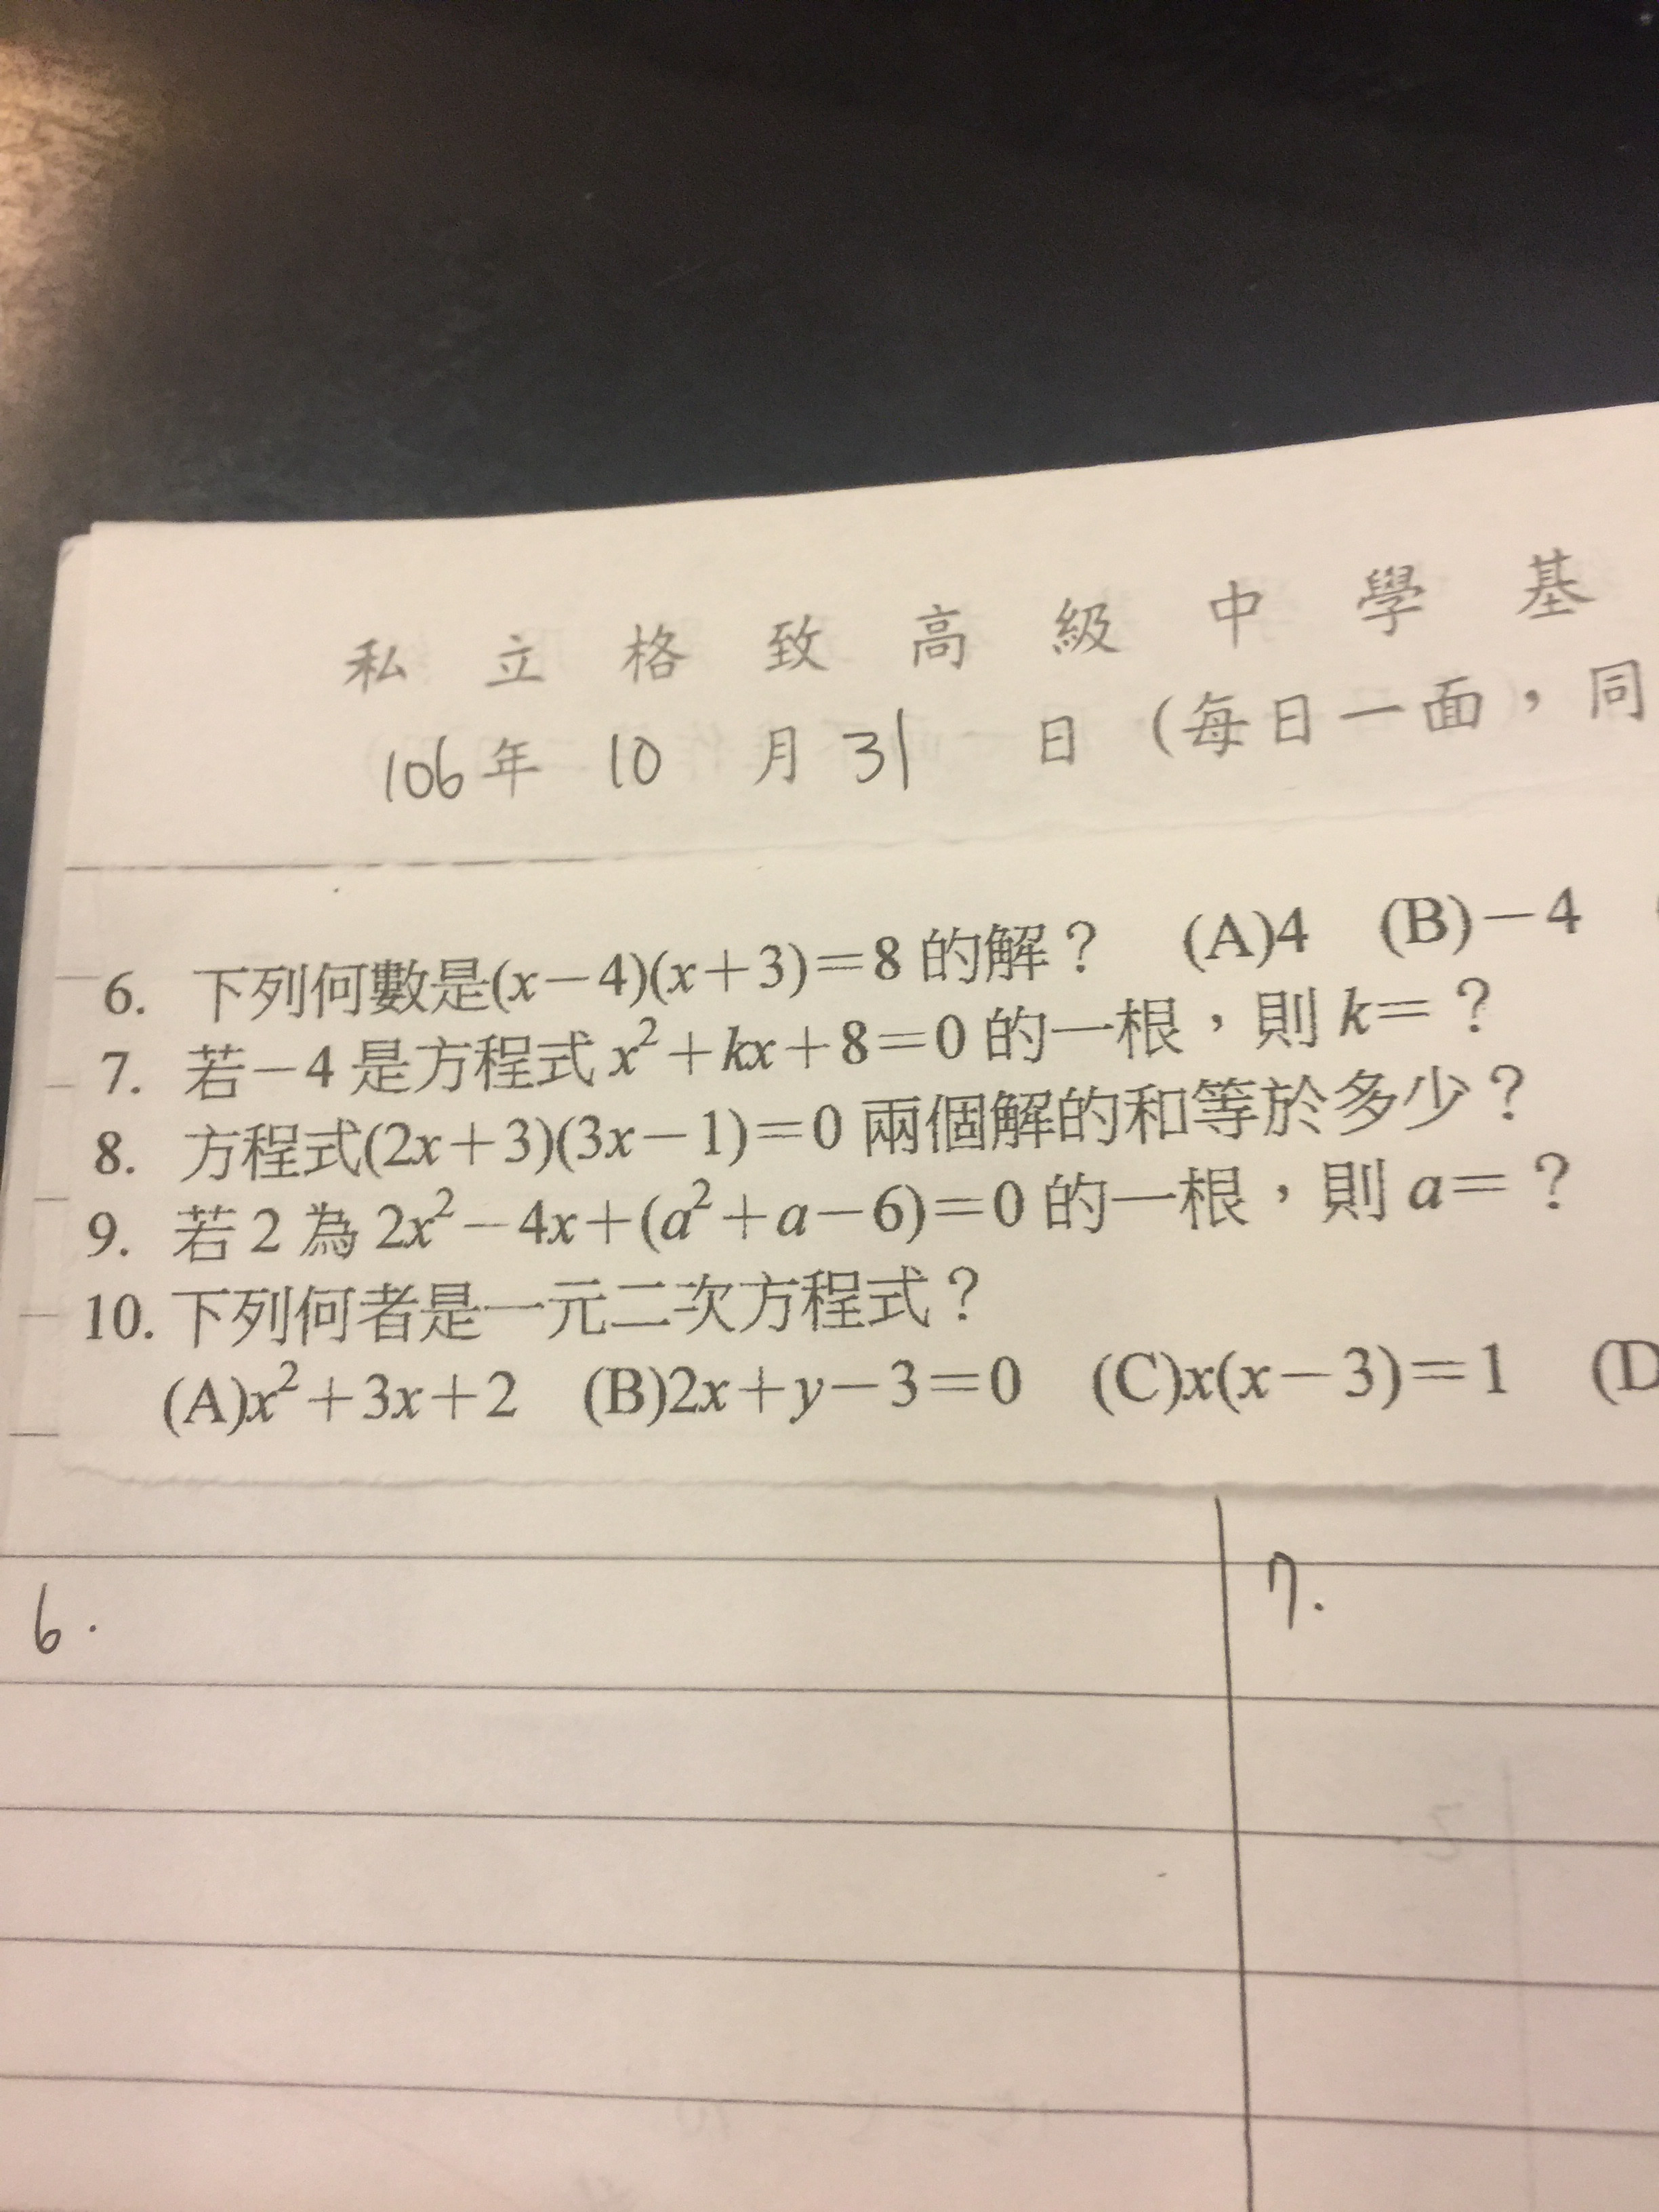 私立格致高級中學基
106年 10 月 31 日（每日一面，同
6. 下列何數是(x－4)(x＋3)＝8 的解？ (A)4 (B)－4
7. 若－4 是方程式 x²＋kx＋8＝0 的一根，則 k＝？
8. 方程式(2x＋3)(3x－1)＝0 兩個解的和等於多少？
9. 若 2 為 2x²－4x＋(a²＋a－6)＝0 的一根，則 a＝？
10. 下列何者是一元二次方程式？
(A)x²＋3x＋2 (B)2x＋y－3＝0 (C)x(x－3)＝1 (D
6. 7.